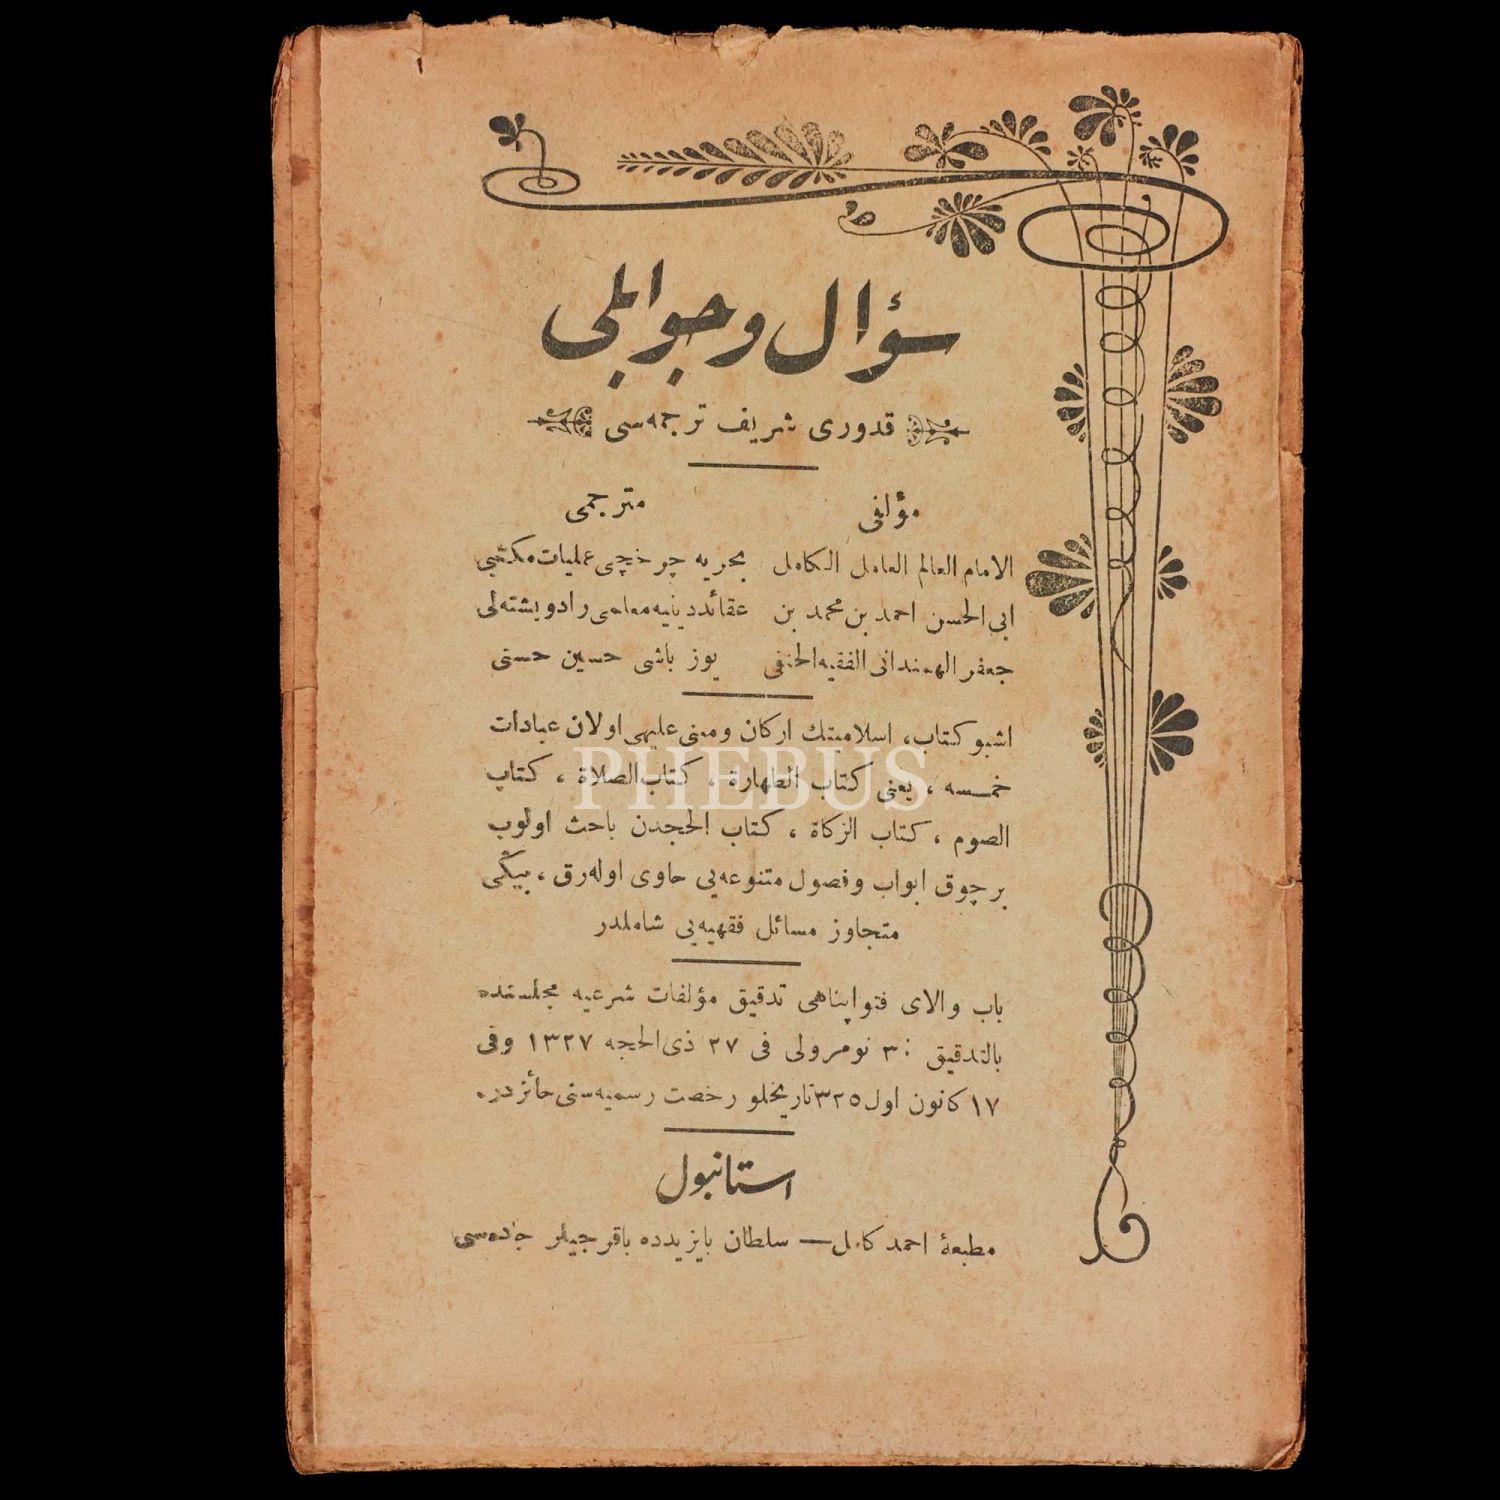 سؤال وجوابلی
قدوری شریف ترجمه‌سی
مؤلفی
الامام العالم العامل الكامل
ابی الحسن احمد بن محمد بن
جعفر الهمندانی الفقیه الحنفی
مترجمی
بحریه چرخچی عملیات مکتبی
عقائد دینیه معلمی رادویشته‌لی
یوز باشی حسین حسنی
اشبو کتاب، اسلامیتك ارکان ومبنی علیهی اولان عبادات
خمسه ، یعنی کتاب الطهارة ، کتاب الصلاة ، کتاب
الصوم ، کتاب الزکاة ، کتاب الحجدن باحث اولوب
بر چوق ابواب وفصول متنوعه‌یی حاوی اوله‌رق ، بیڭی
متجاوز مسائل فقهیه‌یی شاملدر
باب والای فتواپناهی تدقیق مؤلفات شرعیه مجلسنده
بالتدقیق : ٣ نومرولی فی ٢٧ ذی الحجه ١٣٢٧ وفی
١٧ کانون اول ٣٢٥ تاریخلو رخصت رسمیه‌سنی حائزدر.
استانبول
مطبعۀ احمد کامل — سلطان بایزیدده باقرجیلر جاده‌سی
PHEBUS